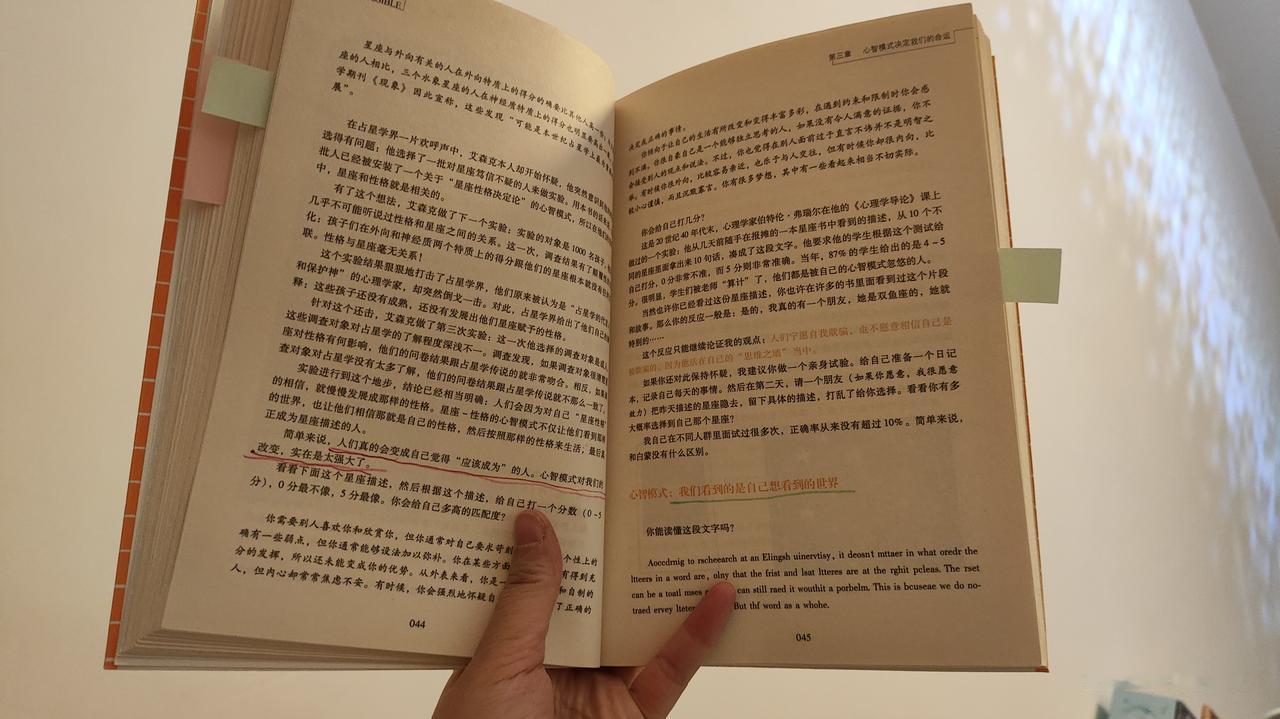 SSIBLE
星座与外向有关的人在外向特质上的得分的确要比其他人高一
座的人相比，三个水象星座的人在神经质特质上的得分也明显要高
学期刊《现象》因此宣称，这些发现“可能是本世纪占星学上最
展”。
在占星学界一片欢呼声中，艾森克本人却开始怀疑，他突然意识到
选得有问题：他选择了一批对星座笃信不疑的人来做实验。用本书的
批人已经被安装了一个关于“星座性格决定论”的心智模式，所以在他们
中，星座和性格就是相关的。
有了这个想法，艾森克做了下一个实验：实验的对象是1000名孩子，
几乎不可能听说过性格和星座之间的关系。这一次，调查结果有了
化：孩子们在外向和神经质两个特质上的得分跟他们的星座根本就没有
联。性格与星座毫无关系！
这个实验结果狠狠地打击了占星学界，他们原来被认为是“占星学的
和保护神”的心理学家，却突然倒戈一击。对此，占星学界给出了他们自己的
释：这些孩子还没有成熟，还没有发展出他们星座赋予的性格。
针对这个还击，艾森克做了第三次实验：这一次他选择的调查对象是成
这些调查对象对占星学的了解程度深浅不一。调查发现，如果调查对象很清楚
座对性格有何影响，他们的问卷结果跟占星学传说的就非常吻合。相反，如果
查对象对占星学没有太多了解，他们的问卷结果跟占星学传说就不那么一致了。
实验进行到这个地步，结论已经相当明确：人们会因为对自己“星座性格”
的相信，就慢慢发展成那样的性格。星座-性格的心智模式不仅让他们看到那样
的世界，也让他们相信那就是自己的性格，然后按照那样的性格来生活，最后真
正成为星座描述的人。
简单来说，人们真的会变成自己觉得“应该成为”的人。心智模式对我们的
改变，实在是太强大了。
看看下面这个星座描述，然后根据这个描述，给自己打一个分数（0~5
分），0分最不像，5分最像。你会给自己多高的匹配度？
你需要别人喜欢你和欣赏你，但你通常对自己要求苛刻 个性上的
确有一些弱点，但你通常能够设法加以弥补。你在某些方面 有得到充
分的发挥，所以还未能变成你的优势。从外表来看，你是一 和自制的
人，但内心却常常焦虑不安。有时候，你会强烈地怀疑自 了正确的
044
第三章 心智模式决定我们的命运
决定或正确的事情。
你倾向于让自己的生活有所改变和变得丰富多彩，在遇到约束和限制时你会感
到不满。你很自豪自己是一个能够独立思考的人，如果没有令人满意的证据，你不
会接受别人的观点和说法。不过，你也觉得在别人面前过于直言不讳并不是明智之
举。有时候你很外向，比较容易亲近，也乐于与人交往，但有时候你却很内向，比
较小心谨慎，而且沉默寡言。你有很多梦想，其中有一些看起来相当不切实际。
你会给自己打几分？
这是20世纪40年代末，心理学家伯特伦·弗瑞尔在他的《心理学导论》课上
做过的一个实验：他从几天前随手在报摊的一本星座书中看到的描述，从10个不
同的星座里面拿出来10句话，凑成了这段文字。他要求他的学生根据这个测试给
自己打分，0分非常不准，而5分则非常准确。当年，87%的学生给出的是4~5
分。很明显，学生们被老师“算计”了，他们都是被自己的心智模式忽悠的人。
当然也许你已经看过这份星座描述，你也许在许多的书里面看到过这个片段
和故事。那么你的反应一般是：是的，我真的有一个朋友，她是双鱼座的，她就
特别的……
这个反应只能继续论证我的观点：人们宁愿自我欺骗，也不愿意相信自己是
被欺骗的。因为他活在自己的“思维之墙”当中。
如果你还对此保持怀疑，我建议你做一个亲身试验。给自己准备一个日记
本，记录自己每天的事情。然后在第二天，请一个朋友（如果你愿意，我很愿意
效力）把昨天描述的星座隐去，留下具体的描述，打乱了给你选择。看看你有多
大概率选择到自己那个星座？
我自己在不同人群里面试过很多次，正确率从来没有超过10%。简单来说，
和白蒙没有什么区别。
心智模式：我们看到的是自己想看到的世界
你能读懂这段文字吗？
Aoccdrnig to rscheearch at an Elingsh uinervtisy, it deosnt mttaer in what oredr the
ltteers in a word are, olny that the frist and lsat ltteres are at the rghit pcleas. The rset
can be a toatl mses can still raed it wouthit a porbelm. This is bcuseae we do no-
traed ervey lteter But thf word as a whohe.
045